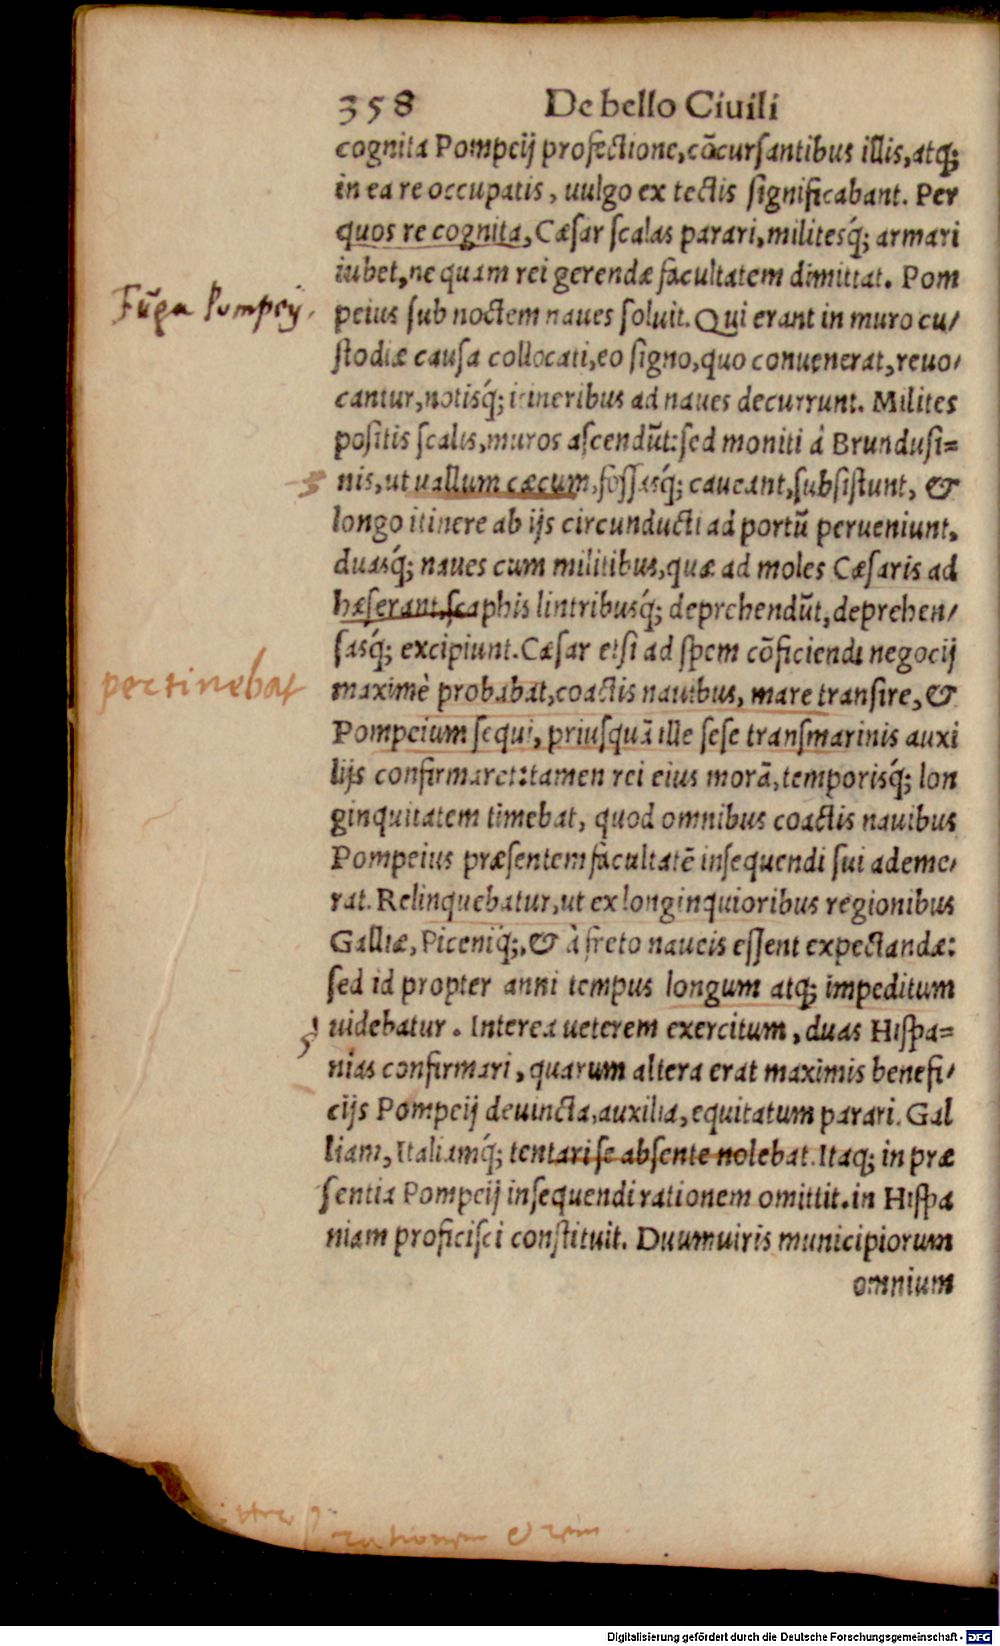 358 De bello Ciuili
cognita Pompeij profectione, cōcursantibus illis, atq;
in ea re occupatis, uulgo ex tectis significabant. Per
quos re cognita, Cæsar scalas parari, militesq́; armari
iubet, ne quam rei gerendæ facultatem dimittat. Pom
Fūga Pompeij.
peius sub noctem naues soluit. Qui erant in muro cu/
stodiæ causa collocati, eo signo, quo conuenerat, reuo/
cantur, notisq́; itineribus ad naues decurrunt. Milites
positis scalis, muros ascendūt: sed moniti à Brundusi=
nis, ut uallum cæcum, fossasq́; caueant, subsistunt, &
longo itinere ab ijs circunducti ad portū perueniunt,
duasq́; naues cum militibus, quæ ad moles Cæsaris ad
hæserant, scaphis lintribusq́; deprehendūt, deprehen/
sasq́; excipiunt. Cæsar etsi ad spem cōficiendi negocij
pertinebat
maximè probabat, coactis nauibus, mare transire, &
Pompeium sequi, priusquā ille sese transmarinis auxi
lijs confirmaret: tamen rei eius morā, temporisq́; lon
ginquitatem timebat, quod omnibus coactis nauibus
Pompeius præsentem facultatē insequendi sui ademe/
rat. Relinquebatur, ut ex longinquioribus regionibus
Galliæ, Piceniq́;, & à freto naueis essent expectandæ:
sed id propter anni tempus longum atq; impeditum
uidebatur. Interea ueterem exercitum, duas Hispa=
nias confirmari, quarum altera erat maximis benefi/
cijs Pompeij deuincta, auxilia, equitatum parari. Gal
liam, Italiamq́; tentari se absente nolebat. Itaq; in præ
sentia Pompeij insequendi rationem omittit. in Hispa
niam proficisci constituit. Duumuiris municipiorum
omnium
rationem
Digitalisierung gefördert durch die Deutsche Forschungsgemeinschaft - DFG